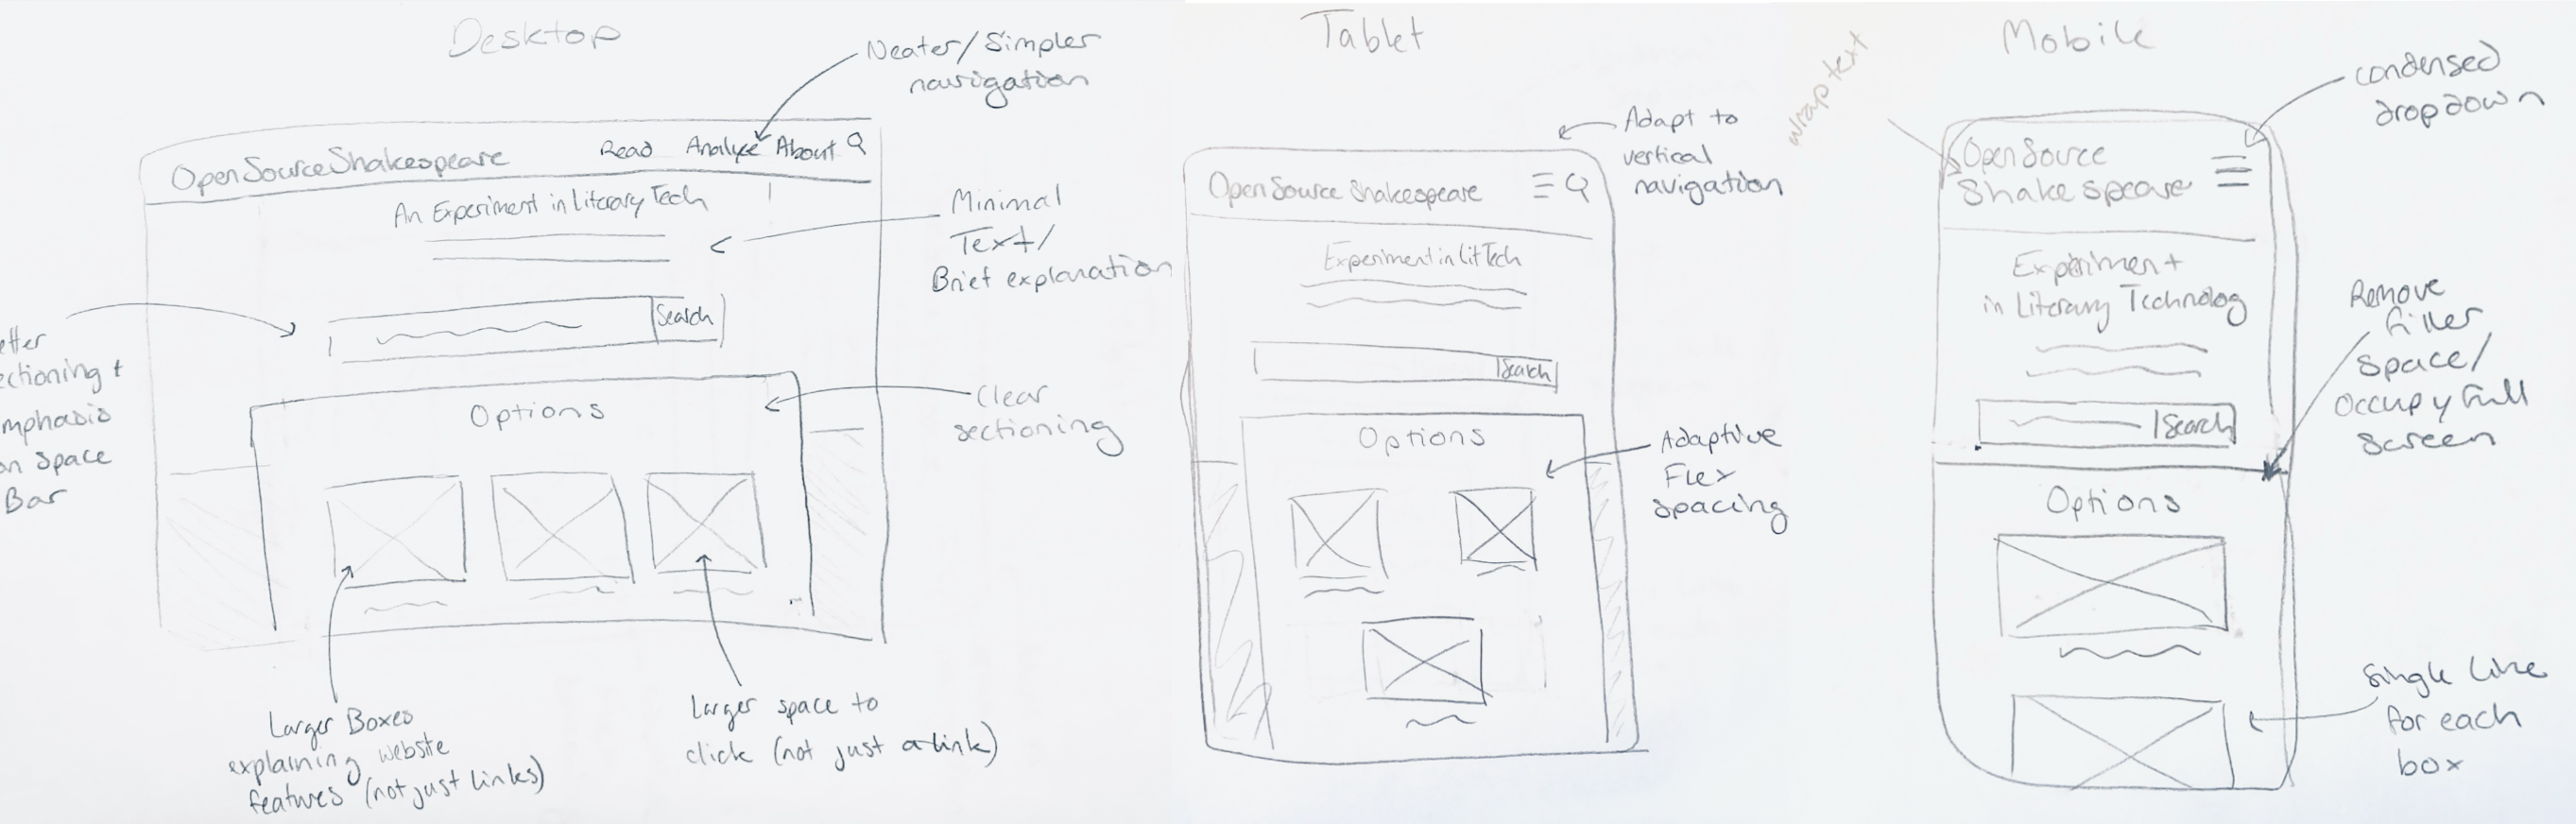 Desktop
Neater/Simpler
navigation
OpenSourceShakespeare
Read Analyze About
An Experiment in Literary Tech
Minimal
Text/
Brief explanation
Search
etter
ectioning +
mphasis
on space
Bar
Options
Clear
sectioning
Larger Boxes
explaining website
features (not just links)
Larger space to
click (not just a link)
Tablet
Adapt to
vertical
navigation
OpenSource Shakespeare
Experiment in Lit Tech
Search
Options
Adaptive
Flex
spacing
Mobile
wrap text
condensed
dropdown
Open Source
Shakespeare
Experiment
in Literary Technolog
Remove
filler
space/
Occupy full
screen
Search
Options
Single Line
for each
box